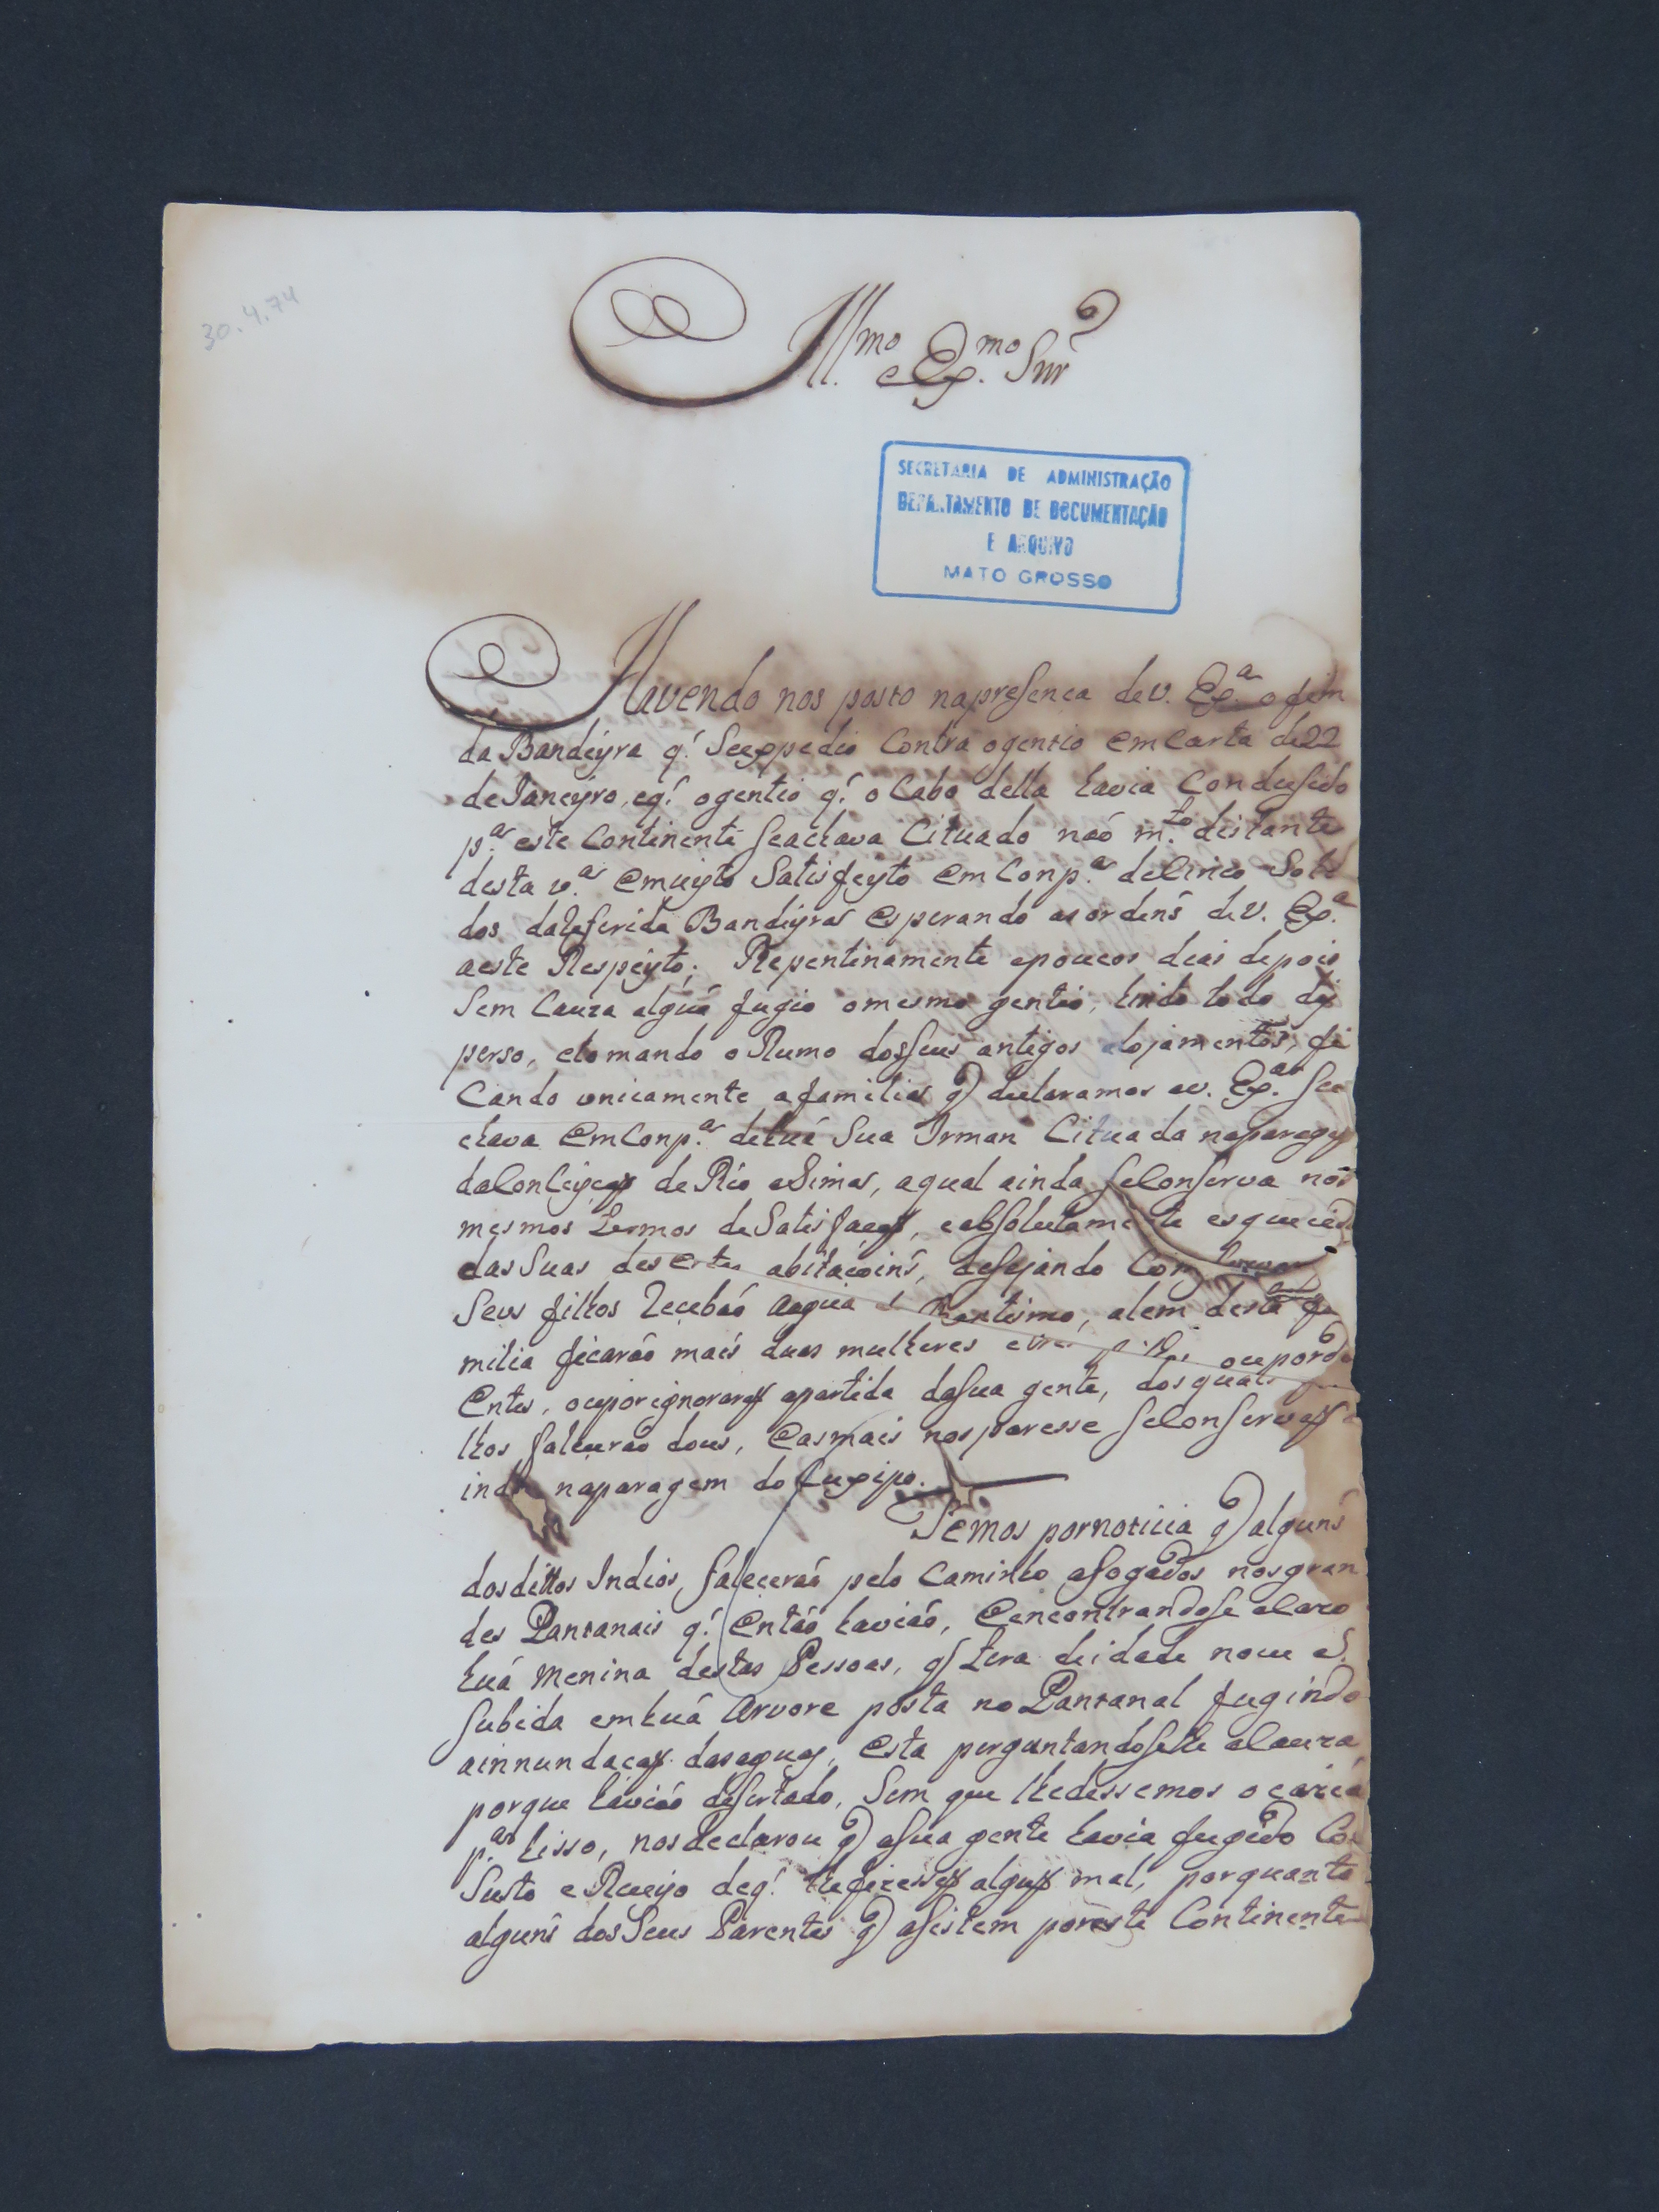 30.4.74
Ill.mo e Ex.mo Snr
SECRETARIA DE ADMINISTRAÇÃO
DEPARTAMENTO DE DOCUMENTAÇÃO
E ARQUIVO
MATO GROSSO
Havendo nos posto napresenca de v. Ex.a o fim
da Bandeyra q.' Seexpedio Contra ogentio Em Carta de 22
de Janeyro, eq.' ogentio q.' o Cabo della havia Condusido
p.a este Continente seachava Cituado naó m.to distante
desta v.a Emuyto Satisfeyto Em Conp.a deCinco Solda
dos daReferida Bandeyra Esperando as ordens de V. Ex.a
aeste Respeyto; Repentinamente epoucos dias depois
Sem Cauza alguá fugio omesmo gentio, hindo todo dis
perso, etomando o Rumo dosSeus antigos alojamentos, fi
Cando unicamente afamilia q declaramos av. Ex.a Sea
chava EmConp.a dehuá Sua Irman Cituada naparagem
daConceyçaõ de Rio aSima, aqual ainda seConserva nos
mesmos termos deSatisfaçaõ, eabsolutamente esquecida
dasSuas desertas abitacoins, desejando Com
Seus filhos Recebaó Aagua do Bautismo, alem desta fa
milia ficaraó mais duas mulheres etres ouporde
Entes, ouporignoraraõ apartida daSua gente, dos quais
lhos faleceraó dous, Easmais nosparesse seConservaõ a
inda naparagem do Cuxipo.
Temos pornoticia q alguns
dosdittos Indios, faleceraó pelo Caminho afogados nosgran
des Pantanais q.' Entaó haviaó, Eencontrandose alazo
huá Menina destas Pessoas, q tera deidade nove a.
subida emhuá Arvore posta no Pantanal fugindo
ainnundaçaõ dasaguas, Esta perguntandoselhe aCauza
porque haviaó desertado, Sem que lhedessemos ocaziá
p.a hisso, nosdeclarou q asua gente havia fugido Com
Susto e Receyo deq.' lhefizessem algum mal, porquanto
alguns dosSeus Parentes q asistem poreste Continente